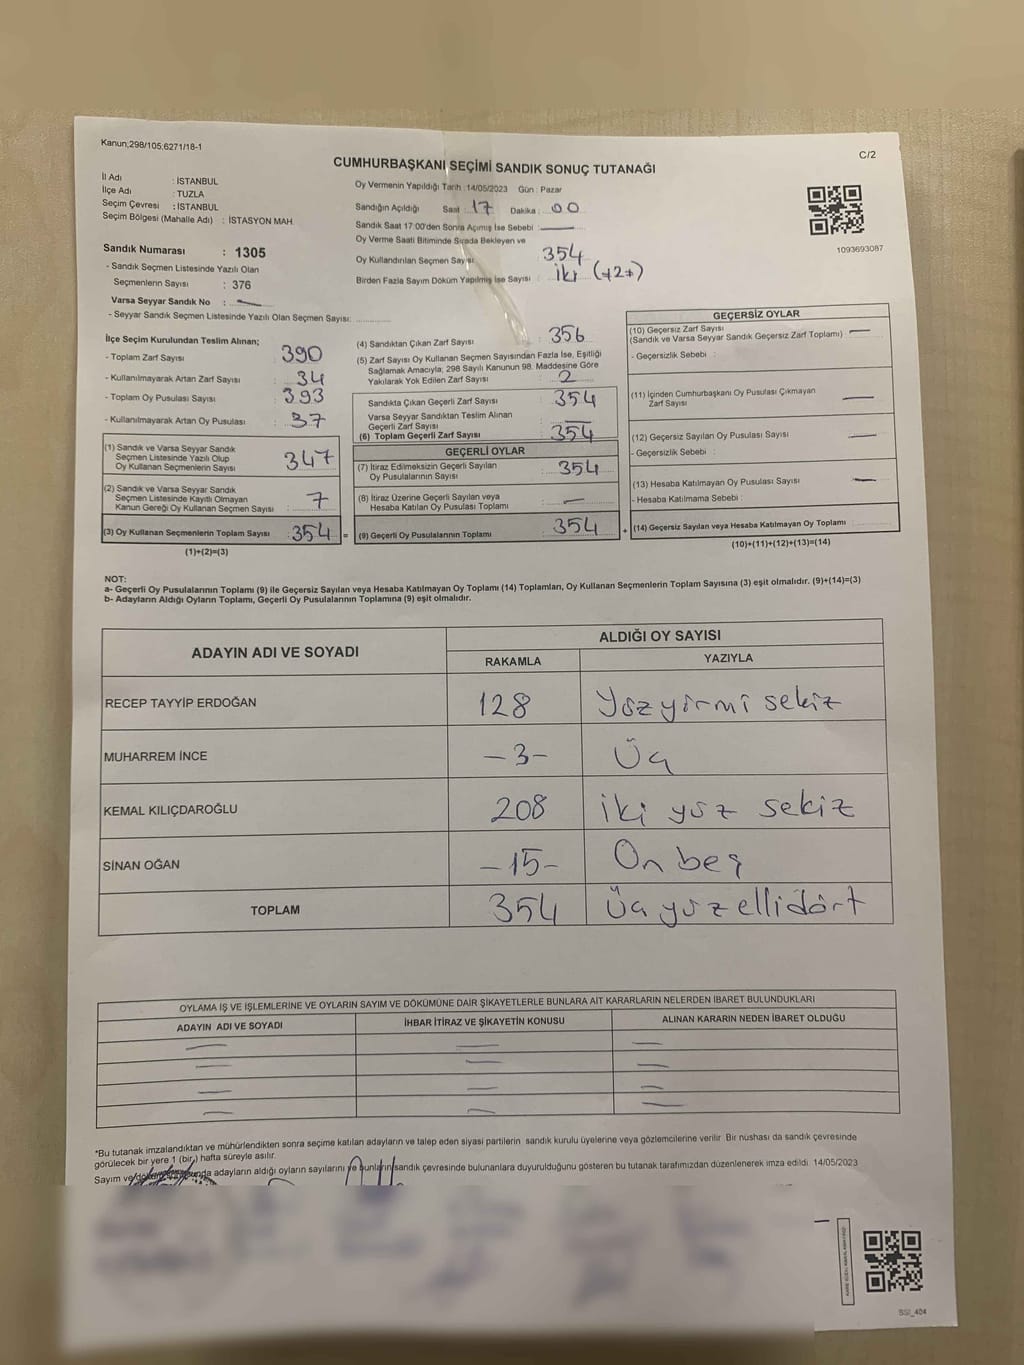 Kanun;298/105,6271/18-1
C/2
CUMHURBAŞKANI SEÇİMİ SANDIK SONUÇ TUTANAĞI
İl Adı : İSTANBUL
İlçe Adı : TUZLA
Seçim Çevresi : İSTANBUL
Seçim Bölgesi (Mahalle Adı) : İSTASYON MAH.
Sandık Numarası : 1305
- Sandık Seçmen Listesinde Yazılı Olan
Seçmenlerin Sayısı : 376
Varsa Seyyar Sandık No : —
- Seyyar Sandık Seçmen Listesinde Yazılı Olan Seçmen Sayısı:
Oy Vermenin Yapıldığı Tarih :14/05/2023 Gün : Pazar
Sandığın Açıldığı Saat : 17 Dakika : 00
Sandık Saat 17:00'den Sonra Açılmış İse Sebebi : —
Oy Verme Saati Bitiminde Sırada Bekleyen ve
Oy Kullandırılan Seçmen Sayısı 354
Birden Fazla Sayım Döküm Yapılmış İse Sayısı : iki (+2+)
1093693087
İlçe Seçim Kurulundan Teslim Alınan;
- Toplam Zarf Sayısı : 390
- Kullanılmayarak Artan Zarf Sayısı : 34
- Toplam Oy Pusulası Sayısı : 393
- Kullanılmayarak Artan Oy Pusulası : 37
(1) Sandık ve Varsa Seyyar Sandık
Seçmen Listesinde Yazılı Olup
Oy Kullanan Seçmenlerin Sayısı 347
(2) Sandık ve Varsa Seyyar Sandık
Seçmen Listesinde Kayıtlı Olmayan
Kanun Gereği Oy Kullanan Seçmen Sayısı 7
(3) Oy Kullanan Seçmenlerin Toplam Sayısı : 354 =
(1)+(2)=(3)
(4) Sandıktan Çıkan Zarf Sayısı : 356
(5) Zarf Sayısı Oy Kullanan Seçmen Sayısından Fazla İse, Eşitliği
Sağlamak Amacıyla; 298 Sayılı Kanunun 98. Maddesine Göre
Yakılarak Yok Edilen Zarf Sayısı : 2
Sandıkta Çıkan Geçerli Zarf Sayısı : 354
Varsa Seyyar Sandıktan Teslim Alınan
Geçerli Zarf Sayısı : —
(6) Toplam Geçerli Zarf Sayısı : 354
GEÇERLİ OYLAR
(7) İtiraz Edilmeksizin Geçerli Sayılan
Oy Pusulasının Sayısı : 354
(8) İtiraz Üzerine Geçerli Sayılan veya
Hesaba Katılan Oy Pusulası Toplamı : —
(9) Geçerli Oy Pusulalarının Toplamı : 354 +
GEÇERSİZ OYLAR
(10) Geçersiz Zarf Sayısı : —
(Sandık ve Varsa Seyyar Sandık Geçersiz Zarf Toplamı)
- Geçersizlik Sebebi :
(11) İçinden Cumhurbaşkanı Oy Pusulası Çıkmayan
Zarf Sayısı : —
(12) Geçersiz Sayılan Oy Pusulası Sayısı : —
- Geçersizlik Sebebi :
(13) Hesaba Katılmayan Oy Pusulası Sayısı : —
- Hesaba Katılmama Sebebi :
(14) Geçersiz Sayılan veya Hesaba Katılmayan Oy Toplamı
(10)+(11)+(12)+(13)=(14)
NOT:
a- Geçerli Oy Pusulalarının Toplamı (9) ile Geçersiz Sayılan veya Hesaba Katılmayan Oy Toplamı (14) Toplamları, Oy Kullanan Seçmenlerin Toplam Sayısına (3) eşit olmalıdır. (9)+(14)=(3)
b- Adayların Aldığı Oyların Toplamı, Geçerli Oy Pusulalarının Toplamına (9) eşit olmalıdır.
ADAYIN ADI VE SOYADI
ALDIĞI OY SAYISI
RAKAMLA YAZIYLA
RECEP TAYYİP ERDOĞAN 128 Yüzyirmi sekiz
MUHARREM İNCE -3- Üç
KEMAL KILIÇDAROĞLU 208 iki yüz sekiz
SİNAN OĞAN -15- On beş
TOPLAM 354 Üç yüz ellidört
OYLAMA İŞ VE İŞLEMLERİNE VE OYLARIN SAYIM VE DÖKÜMÜNE DAİR ŞİKAYETLERLE BUNLARA AİT KARARLARIN NELERDEN İBARET BULUNDUKLARI
ADAYIN ADI VE SOYADI İHBAR İTİRAZ VE ŞİKAYETİN KONUSU ALINAN KARARIN NEDEN İBARET OLDUĞU
*Bu tutanak imzalandıktan ve mühürlendikten sonra seçime katılan adayların ve talep eden siyasi partilerin sandık kurulu üyelerine veya gözlemcilerine verilir. Bir nüshası da sandık çevresinde
görülecek bir yere 1 (bir) hafta süreyle asılır.
Sayım ve adayların aldığı oyların sayılarını ve bunların sandık çevresinde bulunanlara duyurulduğunu gösteren bu tutanak tarafımızdan düzenlenerek imza edildi. 14/05/2023
SSI_404